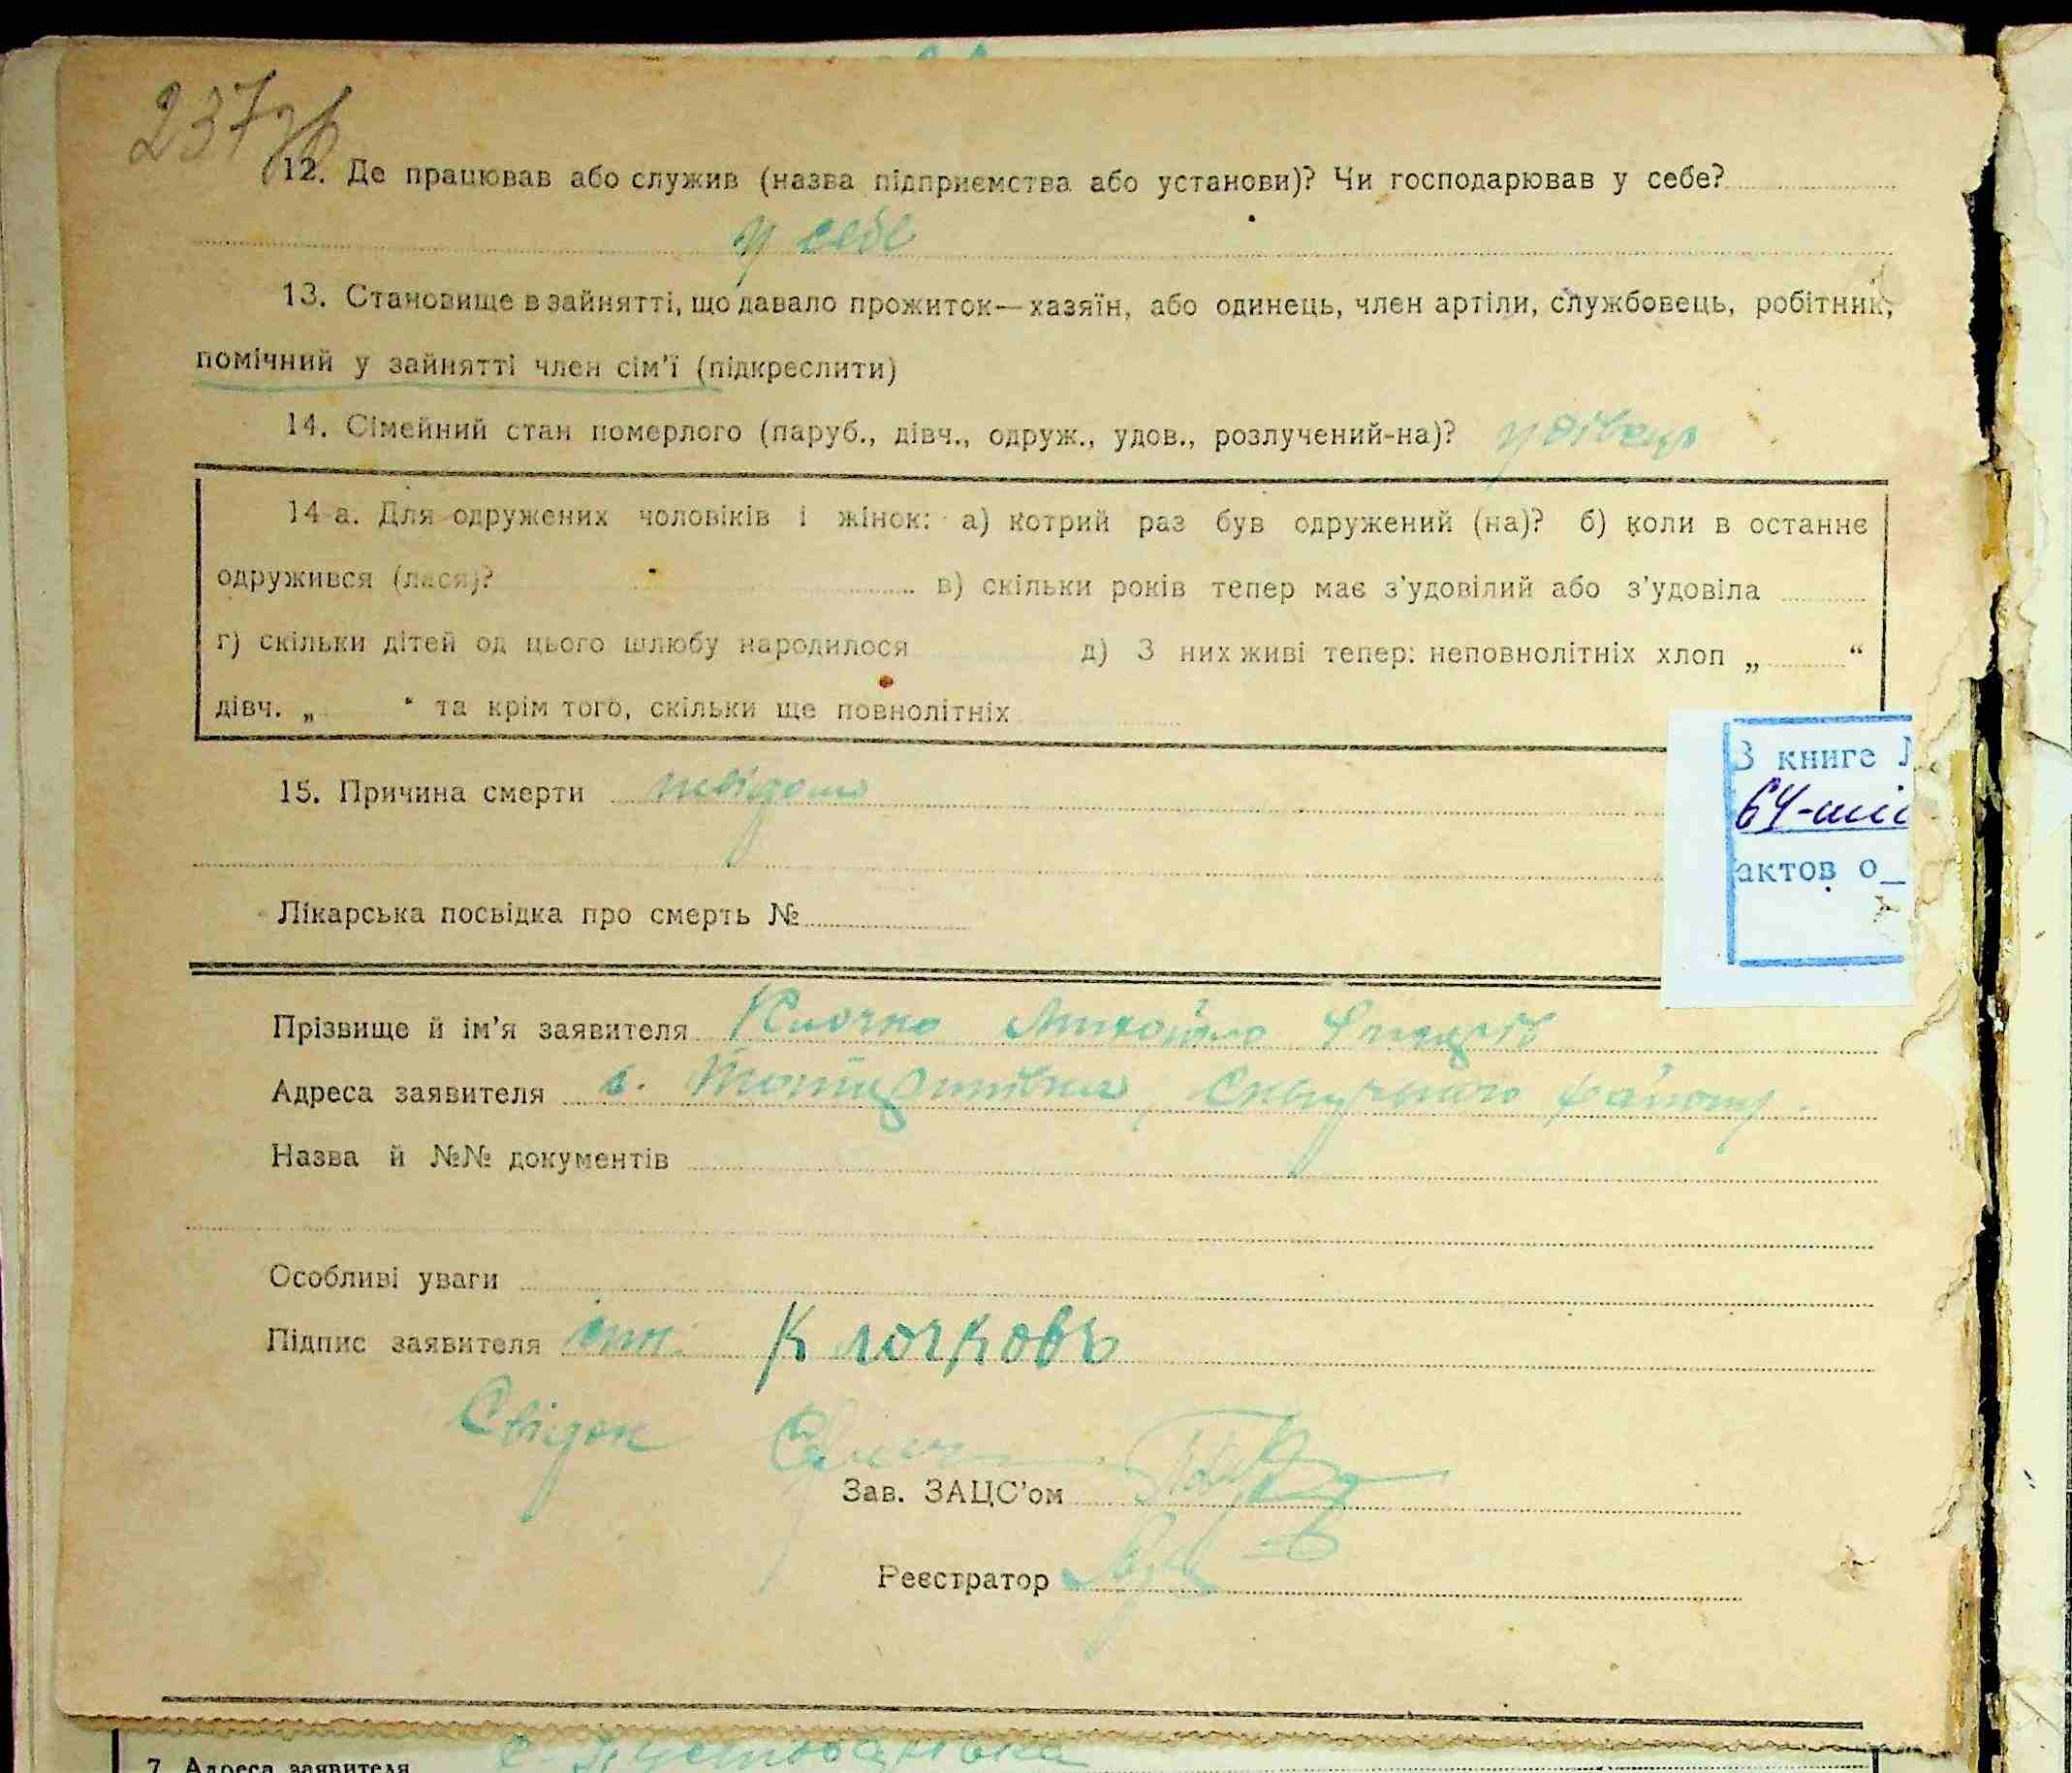 237зв
12. Де працював або служив (назва підприємства або установи)? Чи господарював у себе?
у себе
13. Становище в зайнятті, що давало прожиток—хазяїн, або одинець, член артіли, службовець, робітник,
помічний у зайнятті член сім'ї (підкреслити)
14. Сімейний стан померлого (паруб., дівч., одруж., удов., розлучений-на)? удівець
14-а. Для одружених чоловіків і жінок: а) котрий раз був одружений (на)? б) коли в останнє
одружився (лася)? в) скільки років тепер має з'удовілий або з'удовіла
г) скільки дітей од цього шлюбу народилося д) З них живі тепер: неповнолітніх хлоп „ “
дівч. „ “ та крім того, скільки ще повнолітніх
В книге
64-
актов о_
15. Причина смерти невідома
Лікарська посвідка про смерть №
Прізвище й ім'я заявителя Клочко Михайло
Адреса заявителя с. Сквирського району.
Назва й №№ документів
Особливі уваги
Підпис заявителя Клочковъ
Свідок
Зав. ЗАЦС'ом
Реєстратор
7. Адреса заявителя